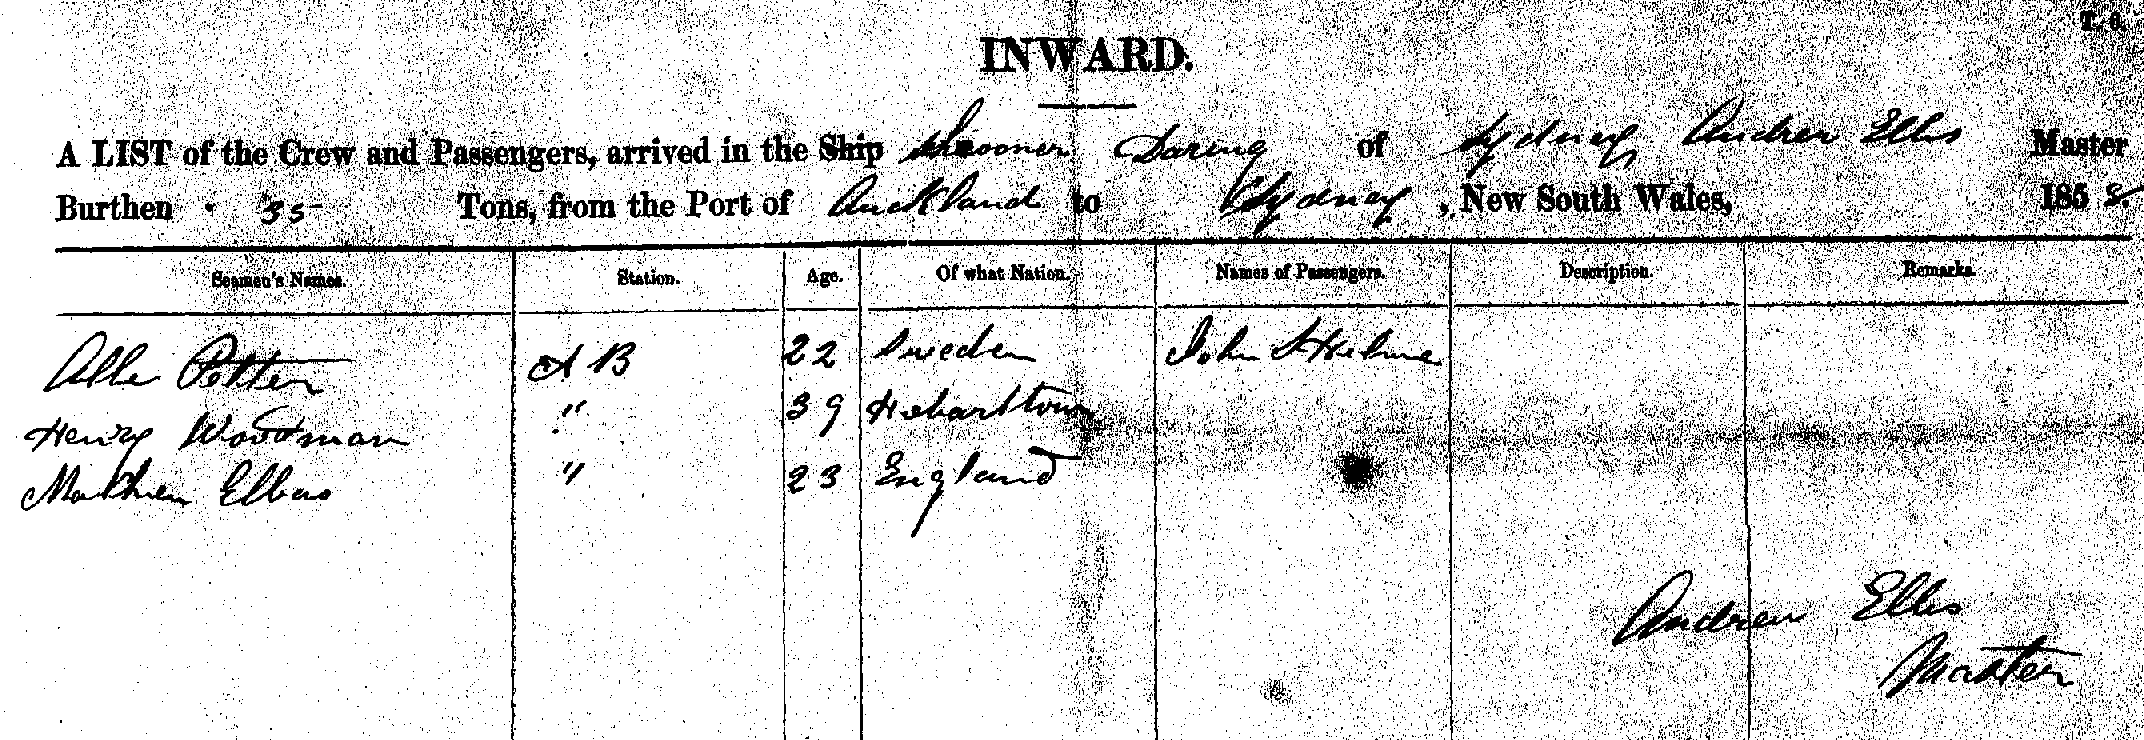 T. 6.
INWARD.
A LIST of the Crew and Passengers, arrived in the Ship Schooner Daring of Sydney Andrew Ellis Master
Burthen 35 Tons, from the Port of Auckland to Sydney, New South Wales, 1858.
Seamen's Names. Station. Age. Of what Nation. Names of Passengers. Description. Remarks.
Potter A B 22 Sweden John
Henry Woodman " 39 Hobarttown
Matthew " 23 England
Andrew Ellis
Master